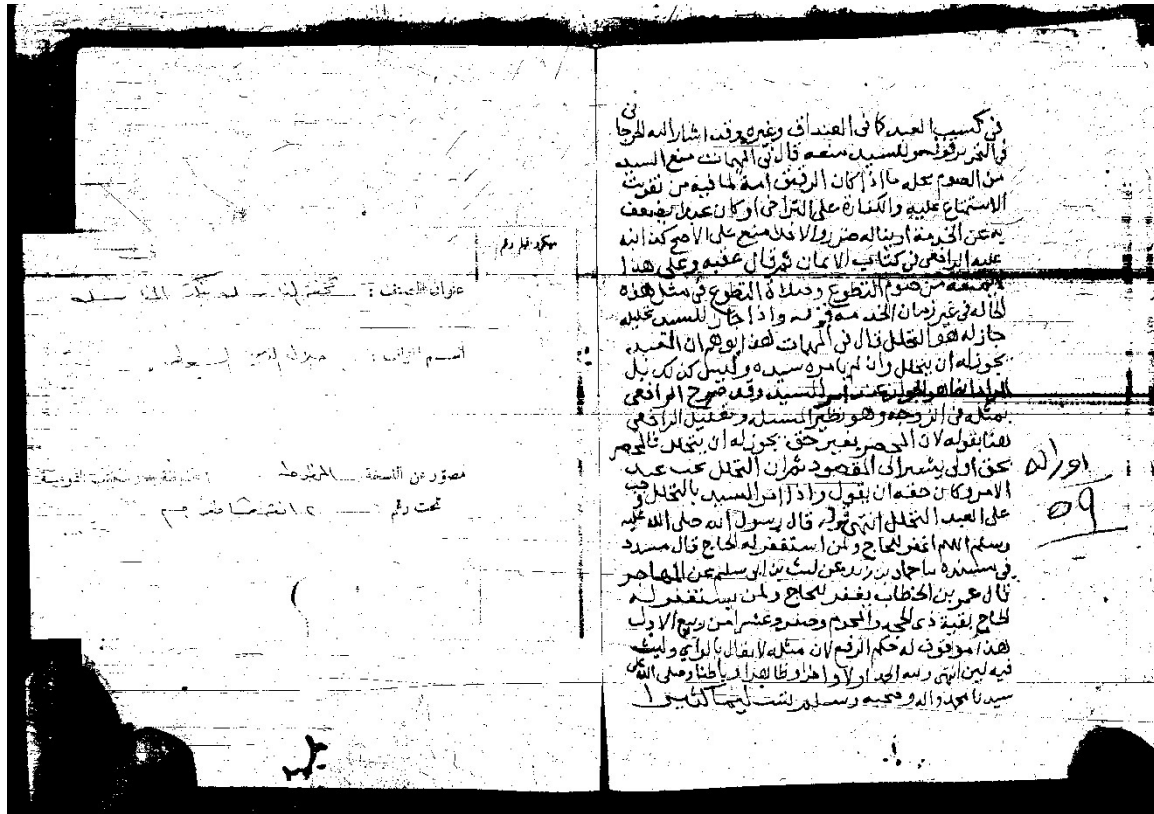 في كسب العبد كما في الصداق وغيره وقد اشار اليه الجرجاني
في التحرير قوله للسيد منعه قال في المهمات منع السيد
من الصوم محله ما اذا كان الرقيق امة لما فيه من تفويت
الاستمتاع عليه والكفارة على التراخي او كان عبدا يضعف
به عن الخدمة او يناله ضرر والا فلا منع على الاصح كذا نبه
عليه الرافعي في كتاب الايمان ثم قال عقبه وعلى هذا
لا يمنعه من صوم التطوع وصلاة التطوع في مثل هذه
الحالة في غير زمان الخدمة قوله واذا جاز للسيد تحليله
جاز له هو التحلل قال في المهمات هذا يوهم ان العبد
يجوز له ان يتحلل وان لم يامره سيده وليس كذلك بل
المراد انما هو الجواز عند امر السيد وقد صرح الرافعي
بمثله في الزوجة وهو نظير المسئلة وتعليل الرافعي
هنا بقوله لان المحصر بغير حق يجوز له ان يتحلل فالمحصر
بحق اولى يشير الى المقصود ثم ان التحلل يجب عند
الامر وكان حقه ان يقول واذا امر السيد بالتحلل وجب
على العبد التحلل انتهى قوله قال رسول الله صلى الله عليه
وسلم اللهم اغفر للحاج ولمن استغفر له الحاج قال مسدد
في مسنده نا حماد بن زيد عن ليث بن ابي سليم عن المهاجر
قال عمر بن الخطاب يغفر للحاج ولمن يستغفر له
الحاج بقية ذي الحجة والمحرم وصفر وعشرا من ربيع الاول
هذا موقوف له حكم الرفع لان مثله لا يقال بالراي وليث
فيه لين انتهى ولله الحمد اولا واخرا وظاهرا وباطنا وصلى الله على
سيدنا محمد واله وصحبه وسلم تسليما كثيرا
اوراقه
٥٩
ميكروفيلم رقم
عنوان المصنف :
اسم المؤلف : جلال الدين السيوطي
مصور عن النسخة المخطوطة
تحت رقم